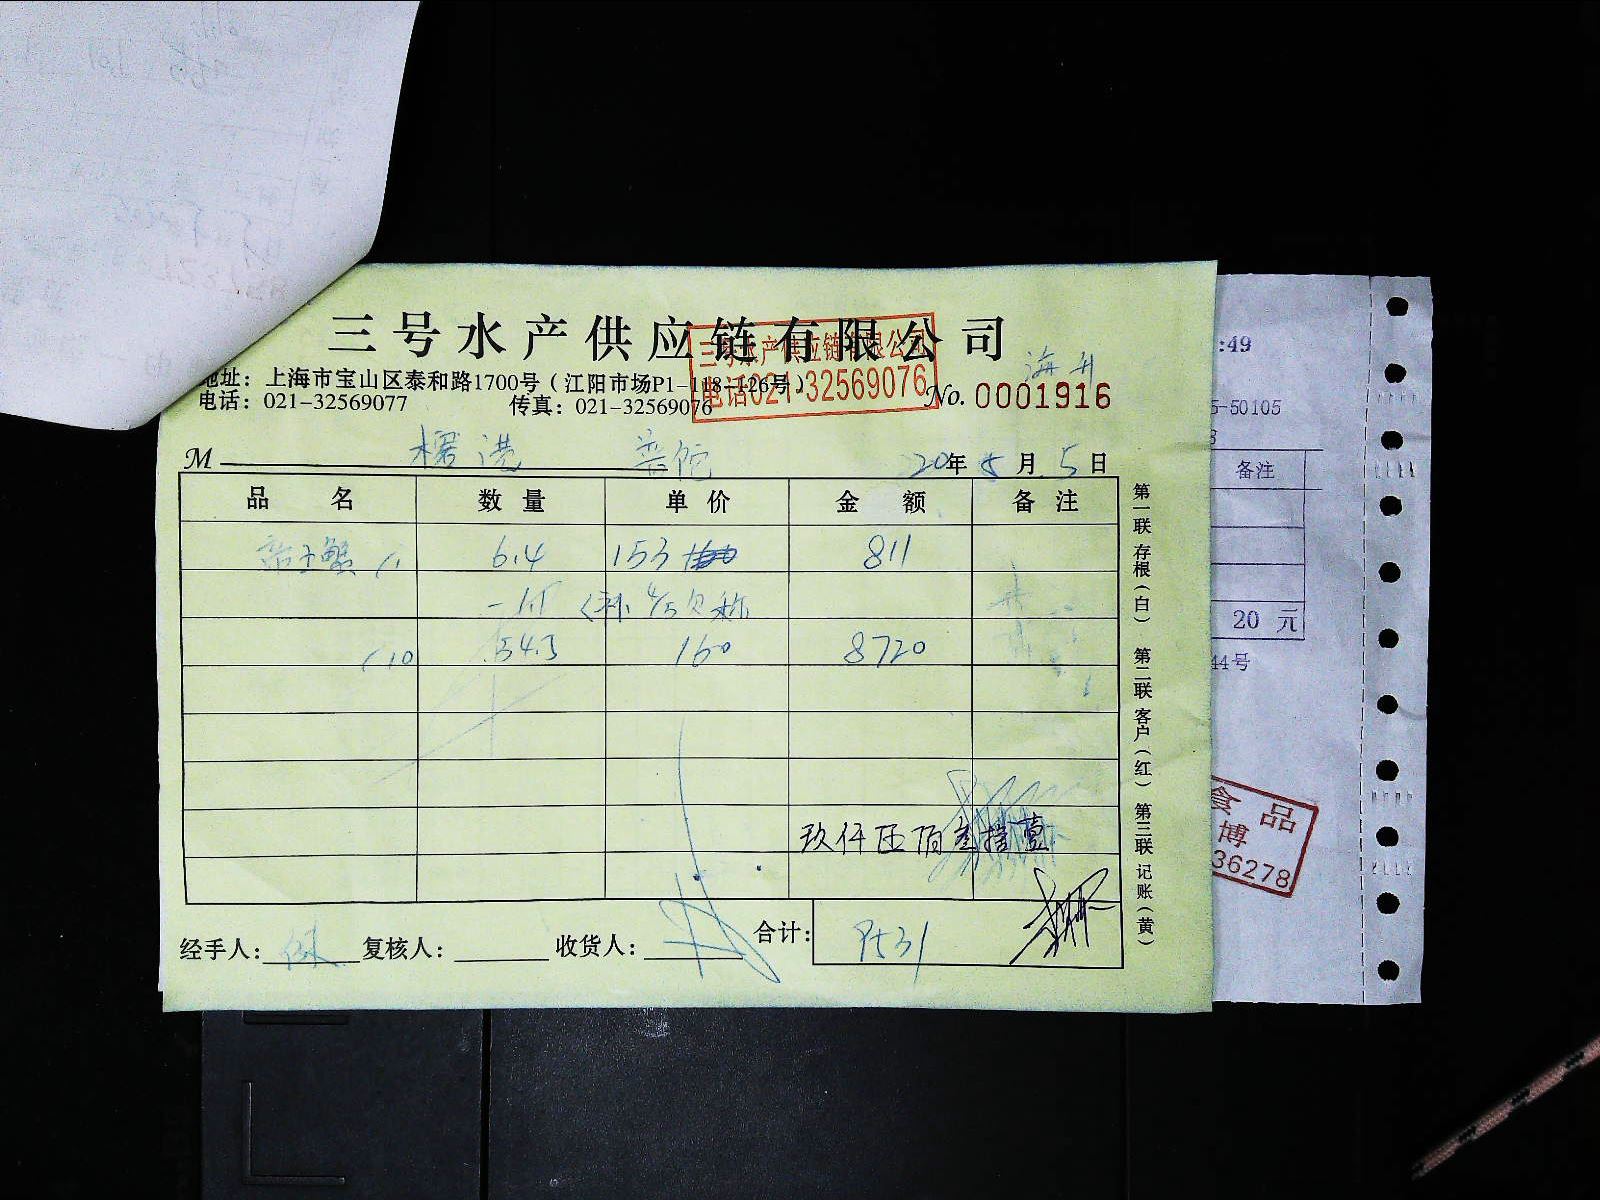 三号水产供应链有限公司
三号水产供应链有限公司
电话021-32569076
地址：上海市宝山区泰和路1700号（江阳市场P1-118-126号）
电话：021-32569077 传真：021-32569076
No. 0001916
M 普陀 20年 5月 5日
品名 数量 单价 金额 备注
帝王蟹 6.4 153 811
-1.1 4/5欠称
/10 54.5 160 8720
玖仟伍佰叁拾壹
经手人： 复核人： 收货人： 合计： 9531
第一联 存根（白） 第二联 客户（红） 第三联 记账（黄）
:49
5-50105
备注
20 元
44号
食品
博
36278